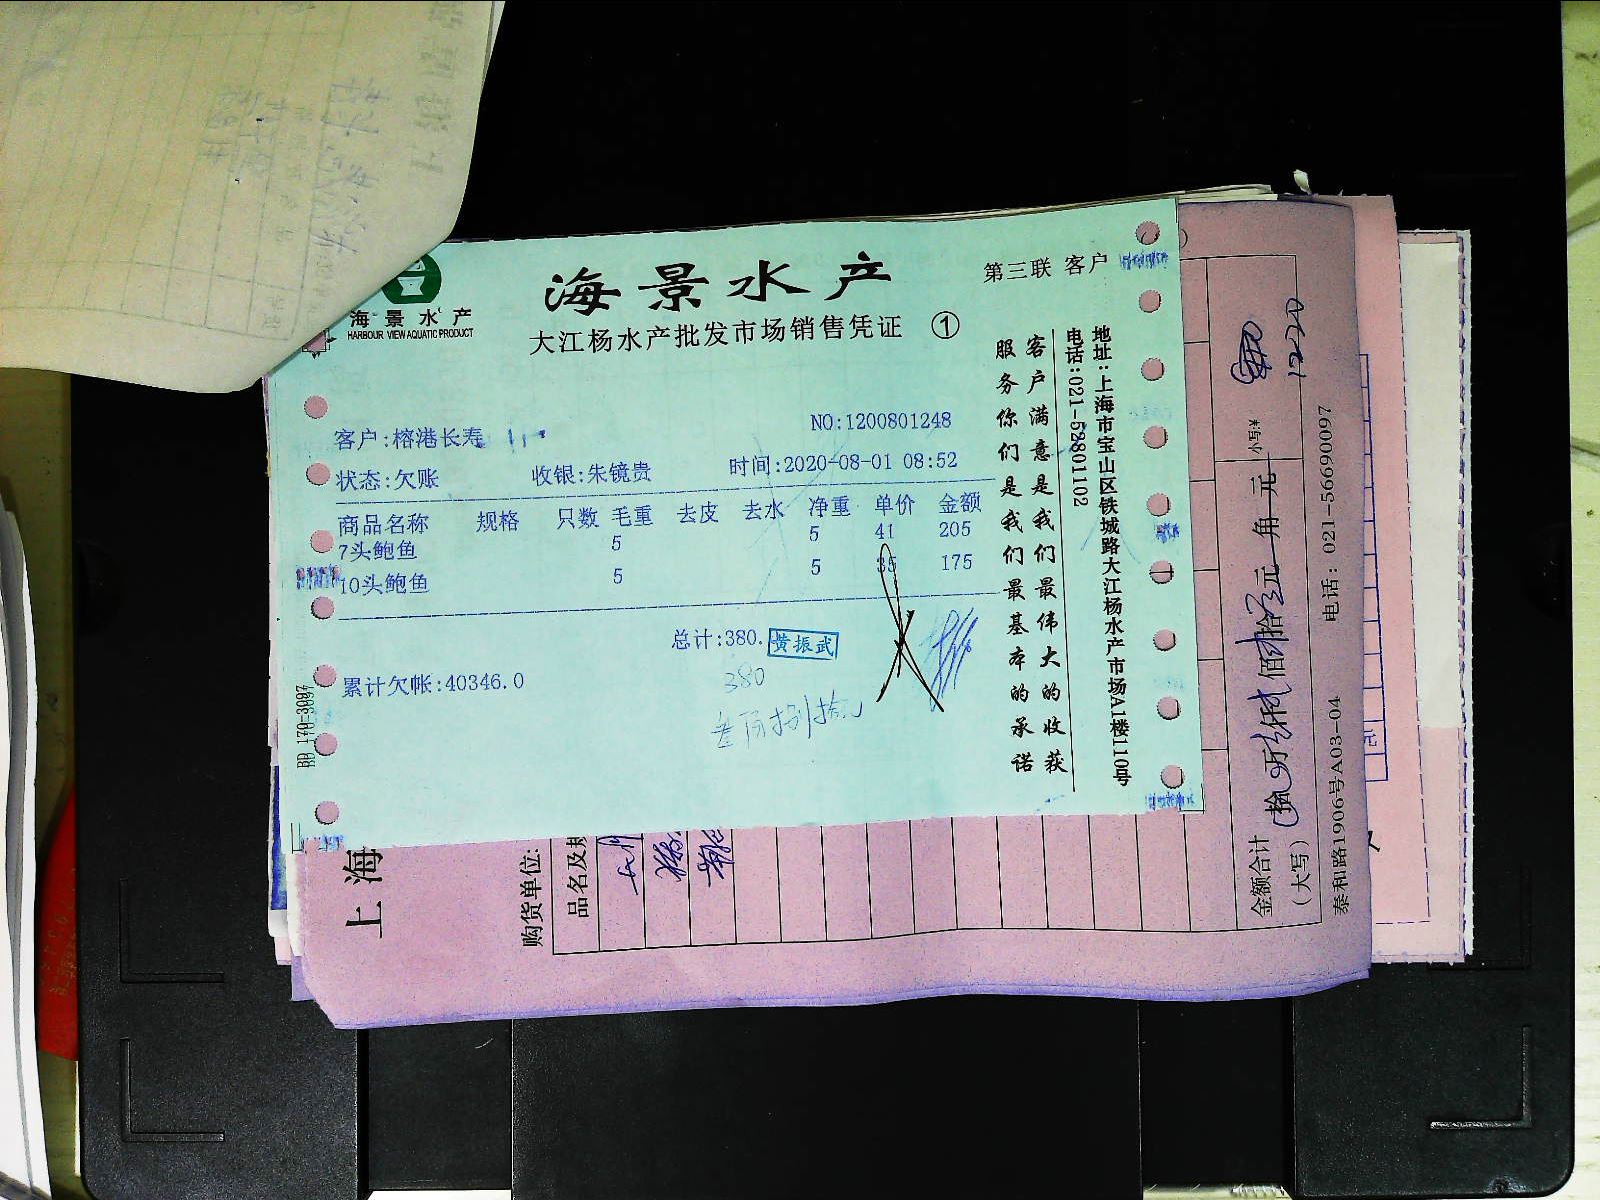 海景水产
HARBOUR VIEW AQUATIC PRODUCT
海景水产
第三联 客户
大江杨水产批发市场销售凭证 ①
客户:榕港长寿
NO:1200801248
状态:欠账 收银:朱镜贵 时间:2020-08-01 08:52
商品名称 规格 只数 毛重 去皮 去水 净重 单价 金额
7头鲍鱼 5 5 41 205
10头鲍鱼 5 5 35 175
总计:380.
黄振武
累计欠帐:40346.0
380
叁佰捌拾元
客户满意是我们最伟大的收获
服务你们是我们最基本的承诺
地址:上海市宝山区铁城路大江杨水产市场A1楼110号
电话:021-52801102
BD 170-3097
上海
购货单位:
品名及规
金额合计
(大写)
拾 万 仟 佰 拾 元 角
元
小写:¥
1220
泰和路1906号A03-04 电话: 021-56690097